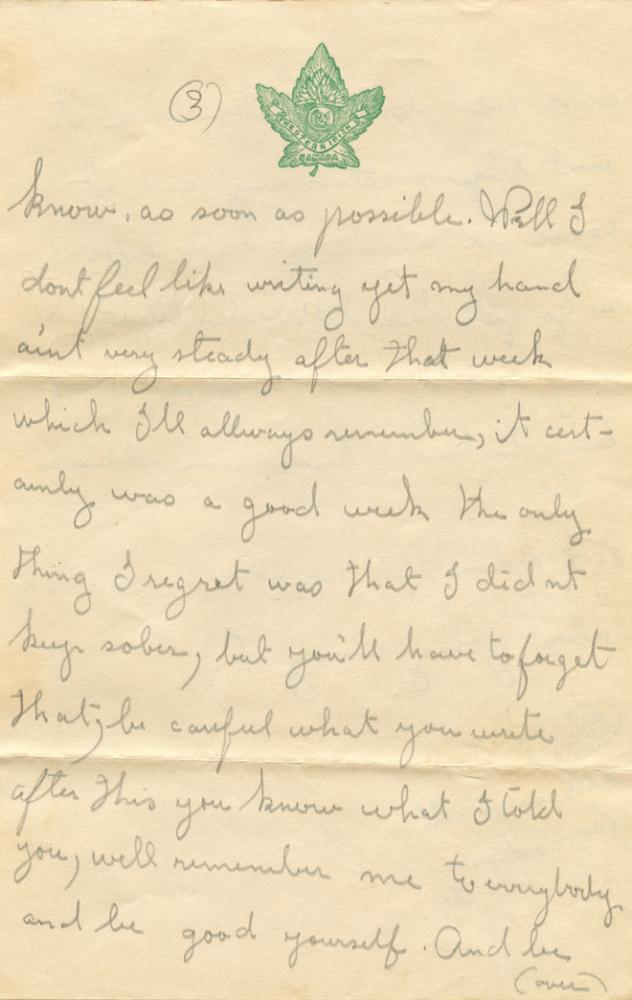 (3)
121
WESTERN IRISH
CANADA
know, as soon as possible. Well I
dont feel like writing yet my hand
ain't very steady after that week
which I'll allways remember, it cert-
ainly was a good week the only
thing I regret was that I didnt
keep sober, but you'll have to forget
that, be careful what you write
after this you know what I told
you, well remember me to everybody
and be good yourself. And be
(over)